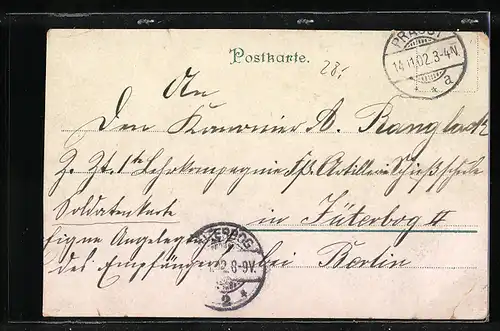 Postkarte.
PRAUST
14.11.02.3-4N.
* * a
28.
An
Den Kanonier A. Ranglack
z. Zt. 1te Lehrkompagnie Fß. Artillerie Schießschule
Soldatenkarte
in Jüterbog II
Eigne Angelegen
des Empfängers
bei Berlin
TERBOG
02. 8-9V.
2 *